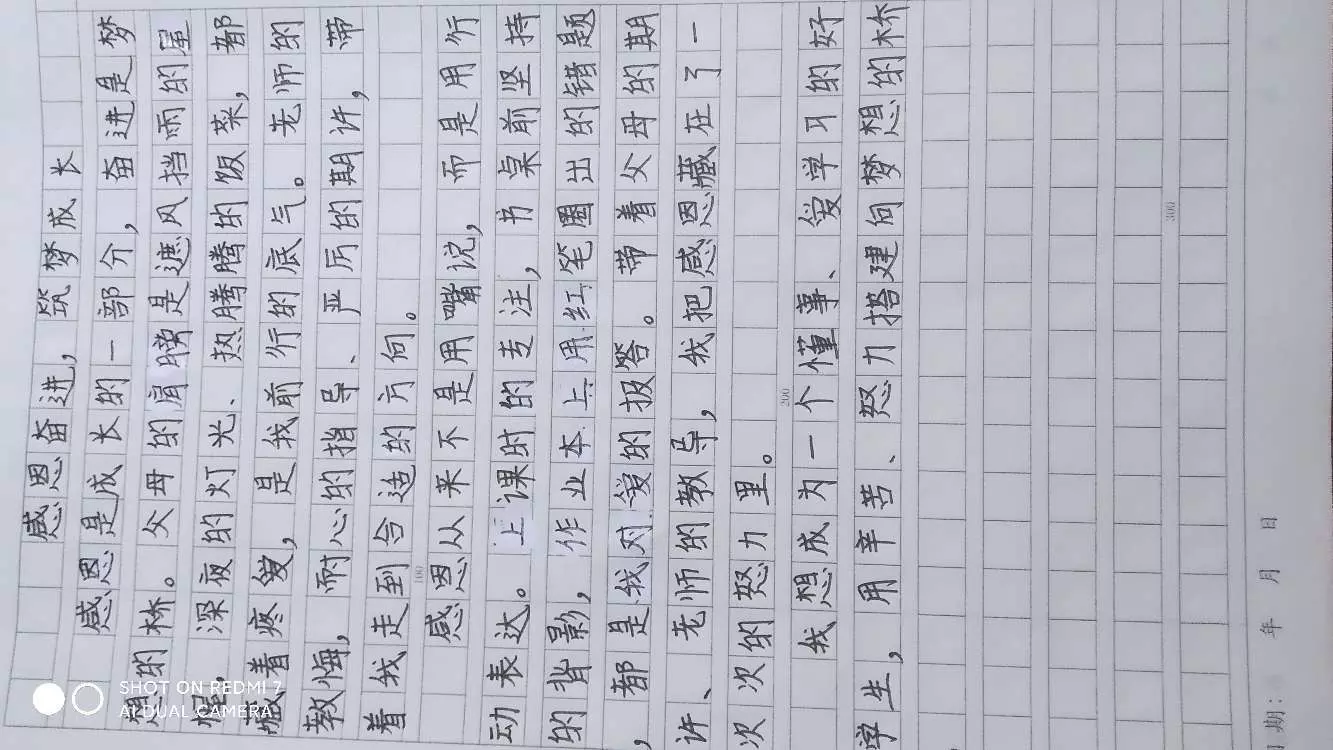 感恩奋进，筑梦成长
感恩是成长的一部分，奋进是梦
想的桥。父母的肩膀是遮风挡雨的屋
檐，深夜的灯光、热腾腾的饭菜，都
藏着疼爱，是我前行的底气。老师的
教悔，耐心的指导、严厉的期许，带
着我走到合适的方向。
100
感恩从来不是用嘴说，而是用行
动表达。上课时的专注，书桌前坚持
的背影，作业本上用红笔圈出的错题
，都是我对爱的报答。带着父母的期
许、老师的教导，我把感恩藏在了一
次次的努力里。
200
我想成为一个懂事、爱学习的好
学生，用辛苦、努力搭建向梦想的桥
。
300
期： 年 月 日
SHOT ON REDMI 7
AI DUAL CAMERA